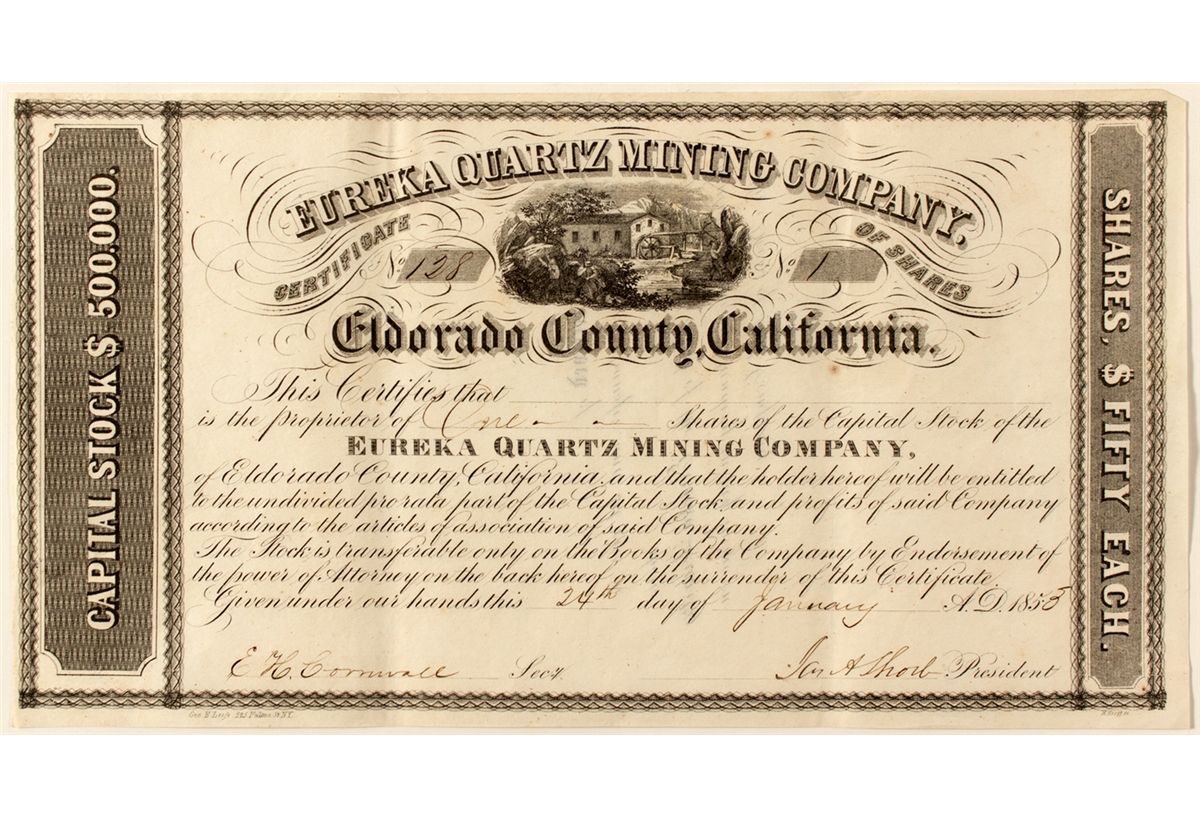 CAPITAL STOCK $ 500.000.
EUREKA QUARTZ MINING COMPANY,
CERTIFICATE No. 128 No. 1 OF SHARES
Eldorado County, California.
This Certifies that
is the proprietor of One Shares of the Capital Stock of the
EUREKA QUARTZ MINING COMPANY,
of Eldorado County, California, and that the holder hereof will be entitled
to the undivided pro rata part of the Capital Stock, and profits of said Company
according to the articles of association of said Company.
The Stock is transferable only on the Books of the Company by Endorsement of
the power of Attorney on the back hereof on the surrender of this Certificate.
Given under our hands this 24th day of January A.D. 1853
E H Cornwall Secy. Jas A Short President
SHARES, $ FIFTY EACH.
Geo. E. Leefe St N.Y.